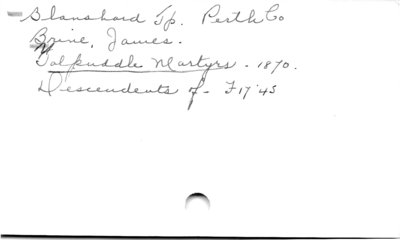 Blanshard Tp. Perth Co
Brine, James.
Tolpuddle Martyrs - 1870.
Descendents of - F17'45